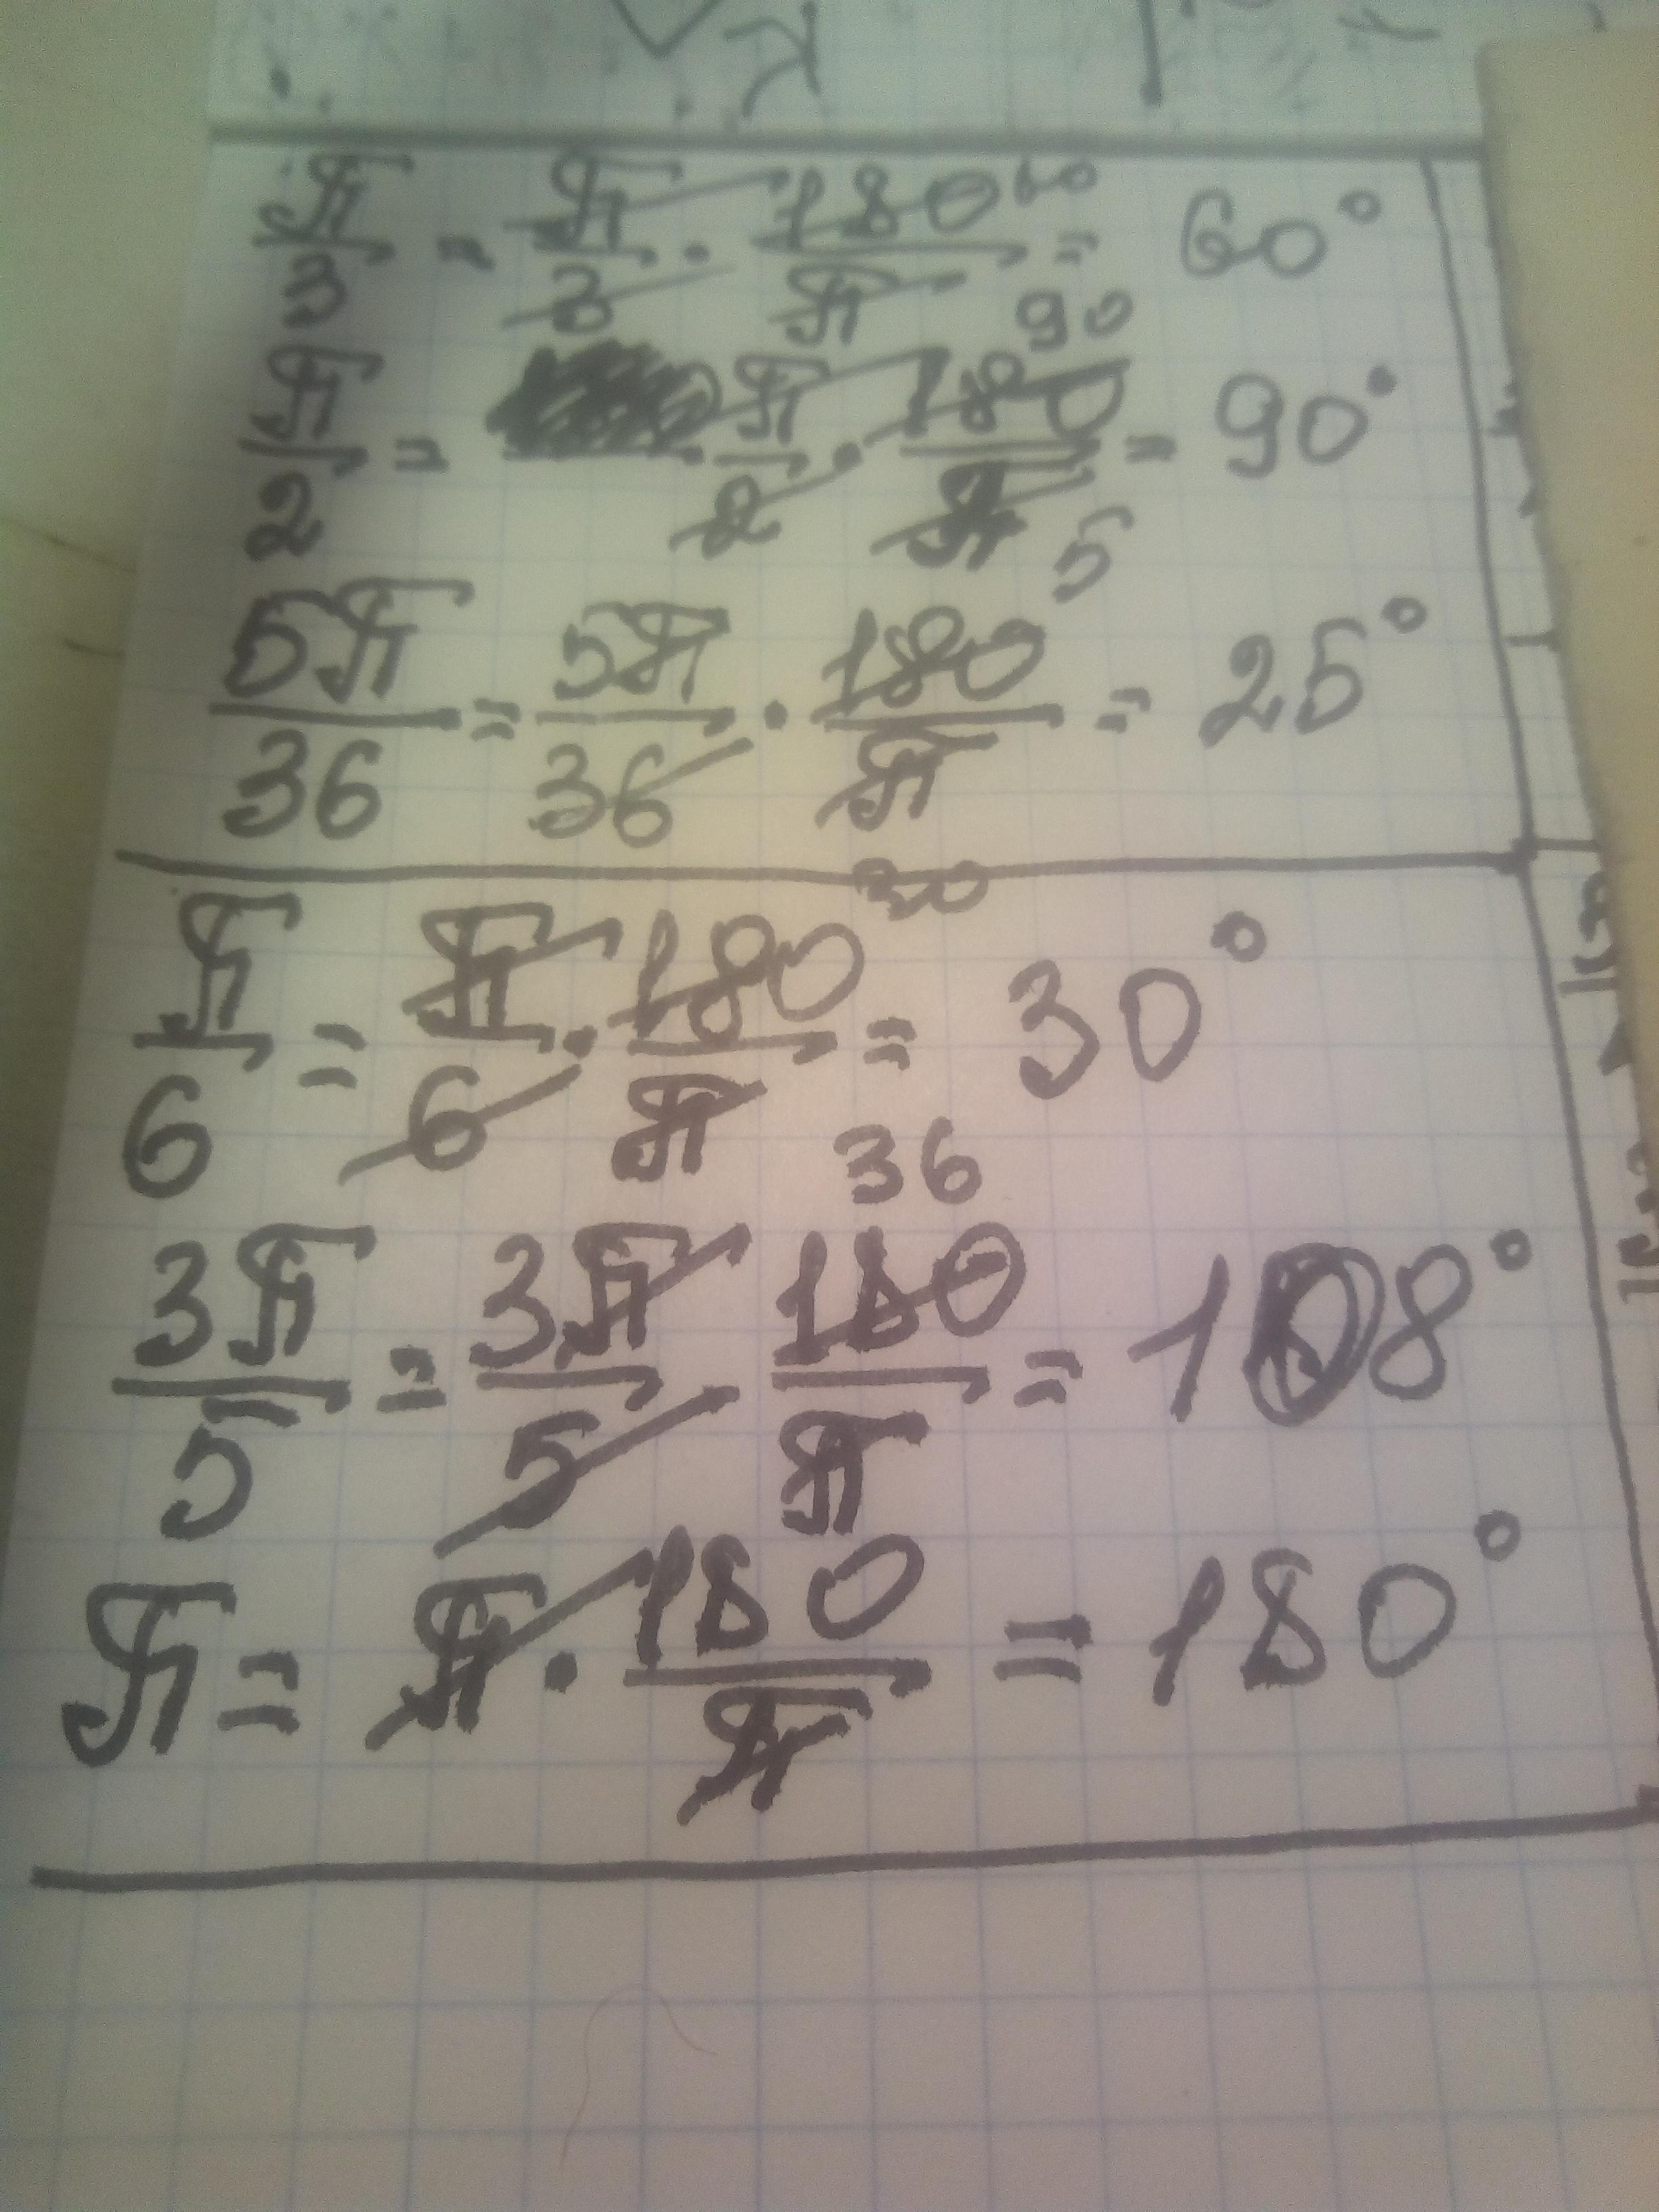 π/3 = π/3 · 180/π 60 = 60°
π/2 = π/2 · 180/π 90 = 90°
5π/36 = 5π/36 · 180/π 5 = 25°
π/6 = π/6 · 180/π 30 = 30°
3π/5 = 3π/5 180/π 36 = 108°
π = π · 180/π = 180°